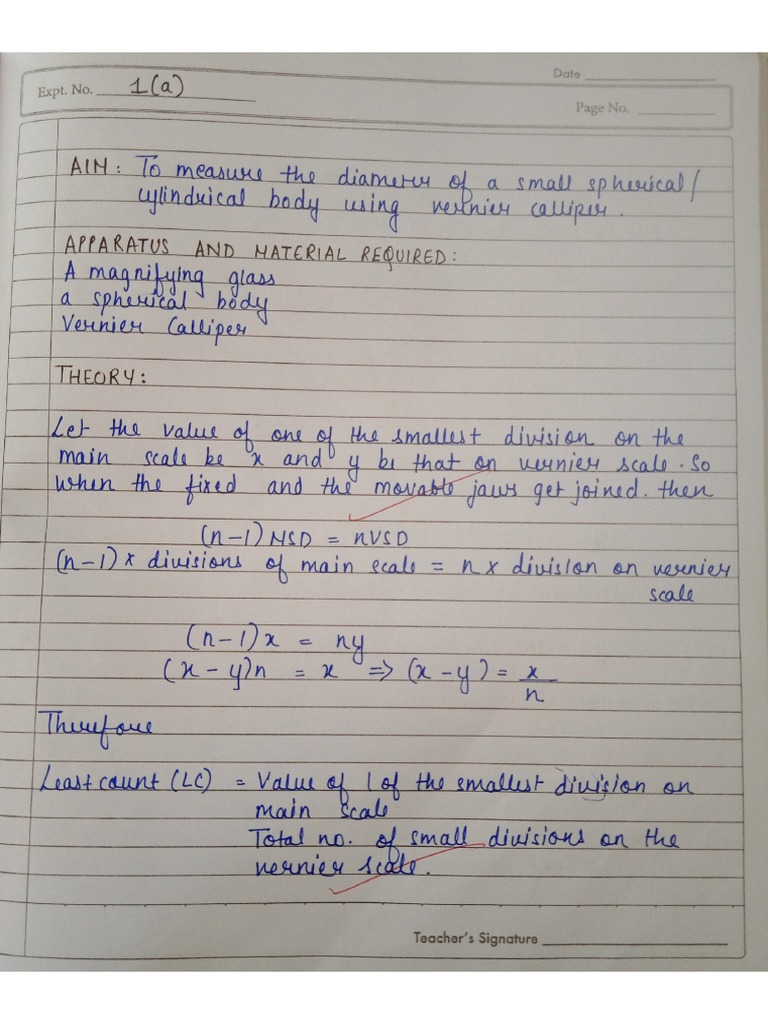 Date
Expt. No. 1(a)
Page No.
AIM: To measure the diameter of a small spherical/
cylindrical body using vernier calliper.
APPARATUS AND MATERIAL REQUIRED:
A magnifying glass
a spherical body
Vernier Calliper
THEORY:
Let the value of one of the smallest division on the
main scale be x and y be that on vernier scale. So
when the fixed and the movable jaws get joined. then
(n-1) MSD = nVSD
(n-1) x divisions of main scale = n x division on vernier
scale
(n-1)x = ny
(x-y)n = x => (x-y) = x/n
Therefore
Least count (LC) = Value of 1 of the smallest division on
main scale
Total no. of small divisions on the
vernier scale.
Teacher's Signature